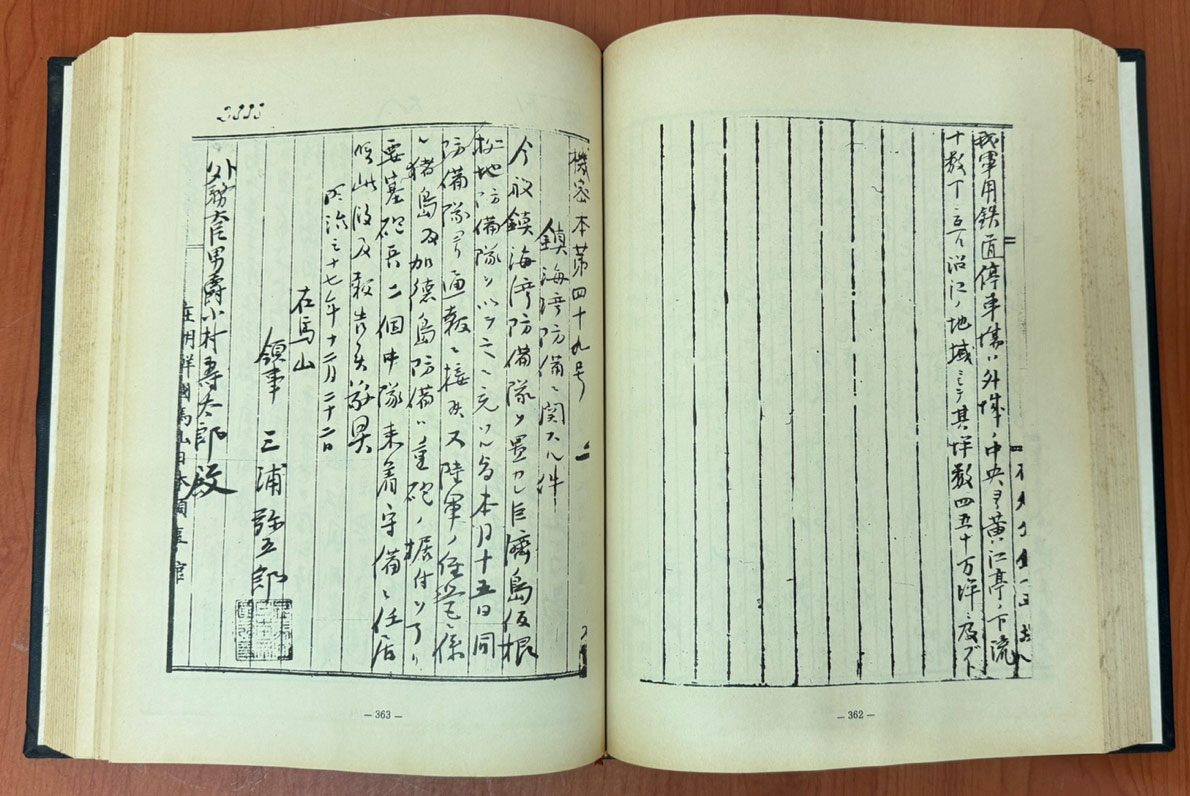 我軍用鉄道停車場ハ外城ノ中央ヨリ黄江亭ノ下流
十数丁ニ亘ル沿江ノ地域ニシテ其坪数四五十万坪ニ及ブト
— 362 —
機密本第四十九号
鎮海湾防備ニ関スル件
今般鎮海湾防備隊ヲ置カレ巨濟島仮根
拠地防備隊ヲ以テ之ニ充ツル旨本月十五日同
防備隊ヨリ通報ニ接候又陸軍ノ任営ニ係
ル猪島及加徳島防備ハ重砲ノ据付ヲ了リ
要塞砲兵二個中隊来着守備ニ任居
候此段及報告候敬具
明治三十七年十二月二十二日
在馬山
領事 三浦弥五郎
外務大臣男爵小村寿太郎殿
在朝鮮國馬山日本領事館
— 363 —